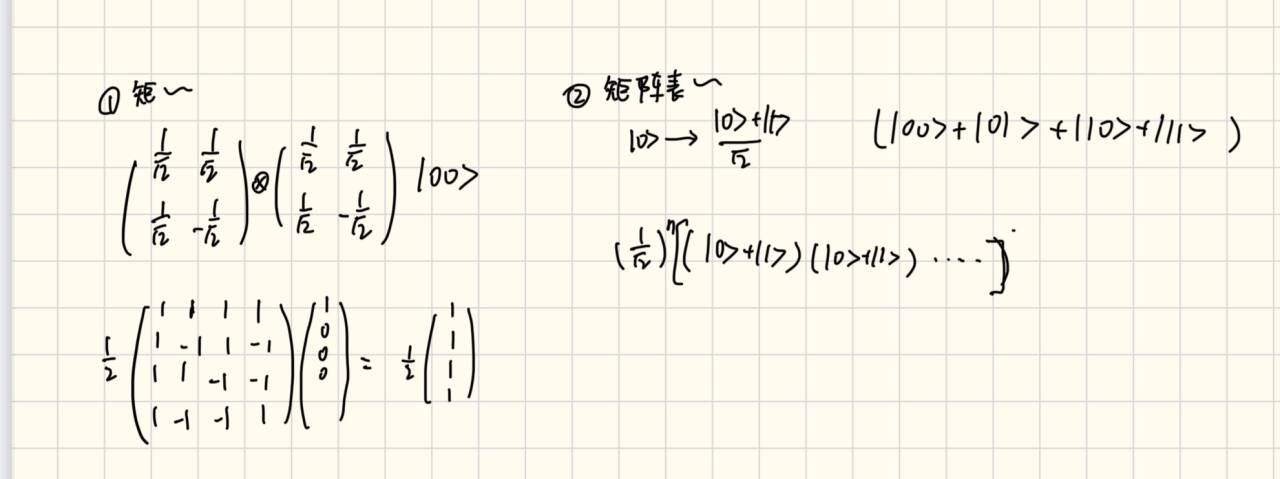 ① 矩~
( 1/√2 1/√2
1/√2 -1/√2 ) ⊗ ( 1/√2 1/√2
1/√2 -1/√2 ) |00>
1/2 ( 1 1 1 1
1 -1 1 -1
1 1 -1 -1
1 -1 -1 1 ) ( 1
0
0
0 ) = 1/2 ( 1
1
1
1 )
② 矩阵表~
|0> → |0>+|1> / √2 (|00>+|01>+|10>+|11>)
(1/√2)ⁿ [(|0>+|1>)(|0>+|1>) ·····]